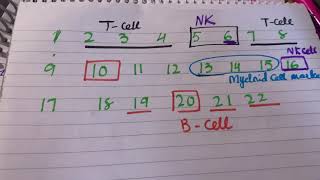 T-cell NK T-cell
1 2 3 4 5 6 7 8
NK cell
9 10 11 12 13 14 15 16
Myeloid cell marke
17 18 19 20 21 22
B-cell